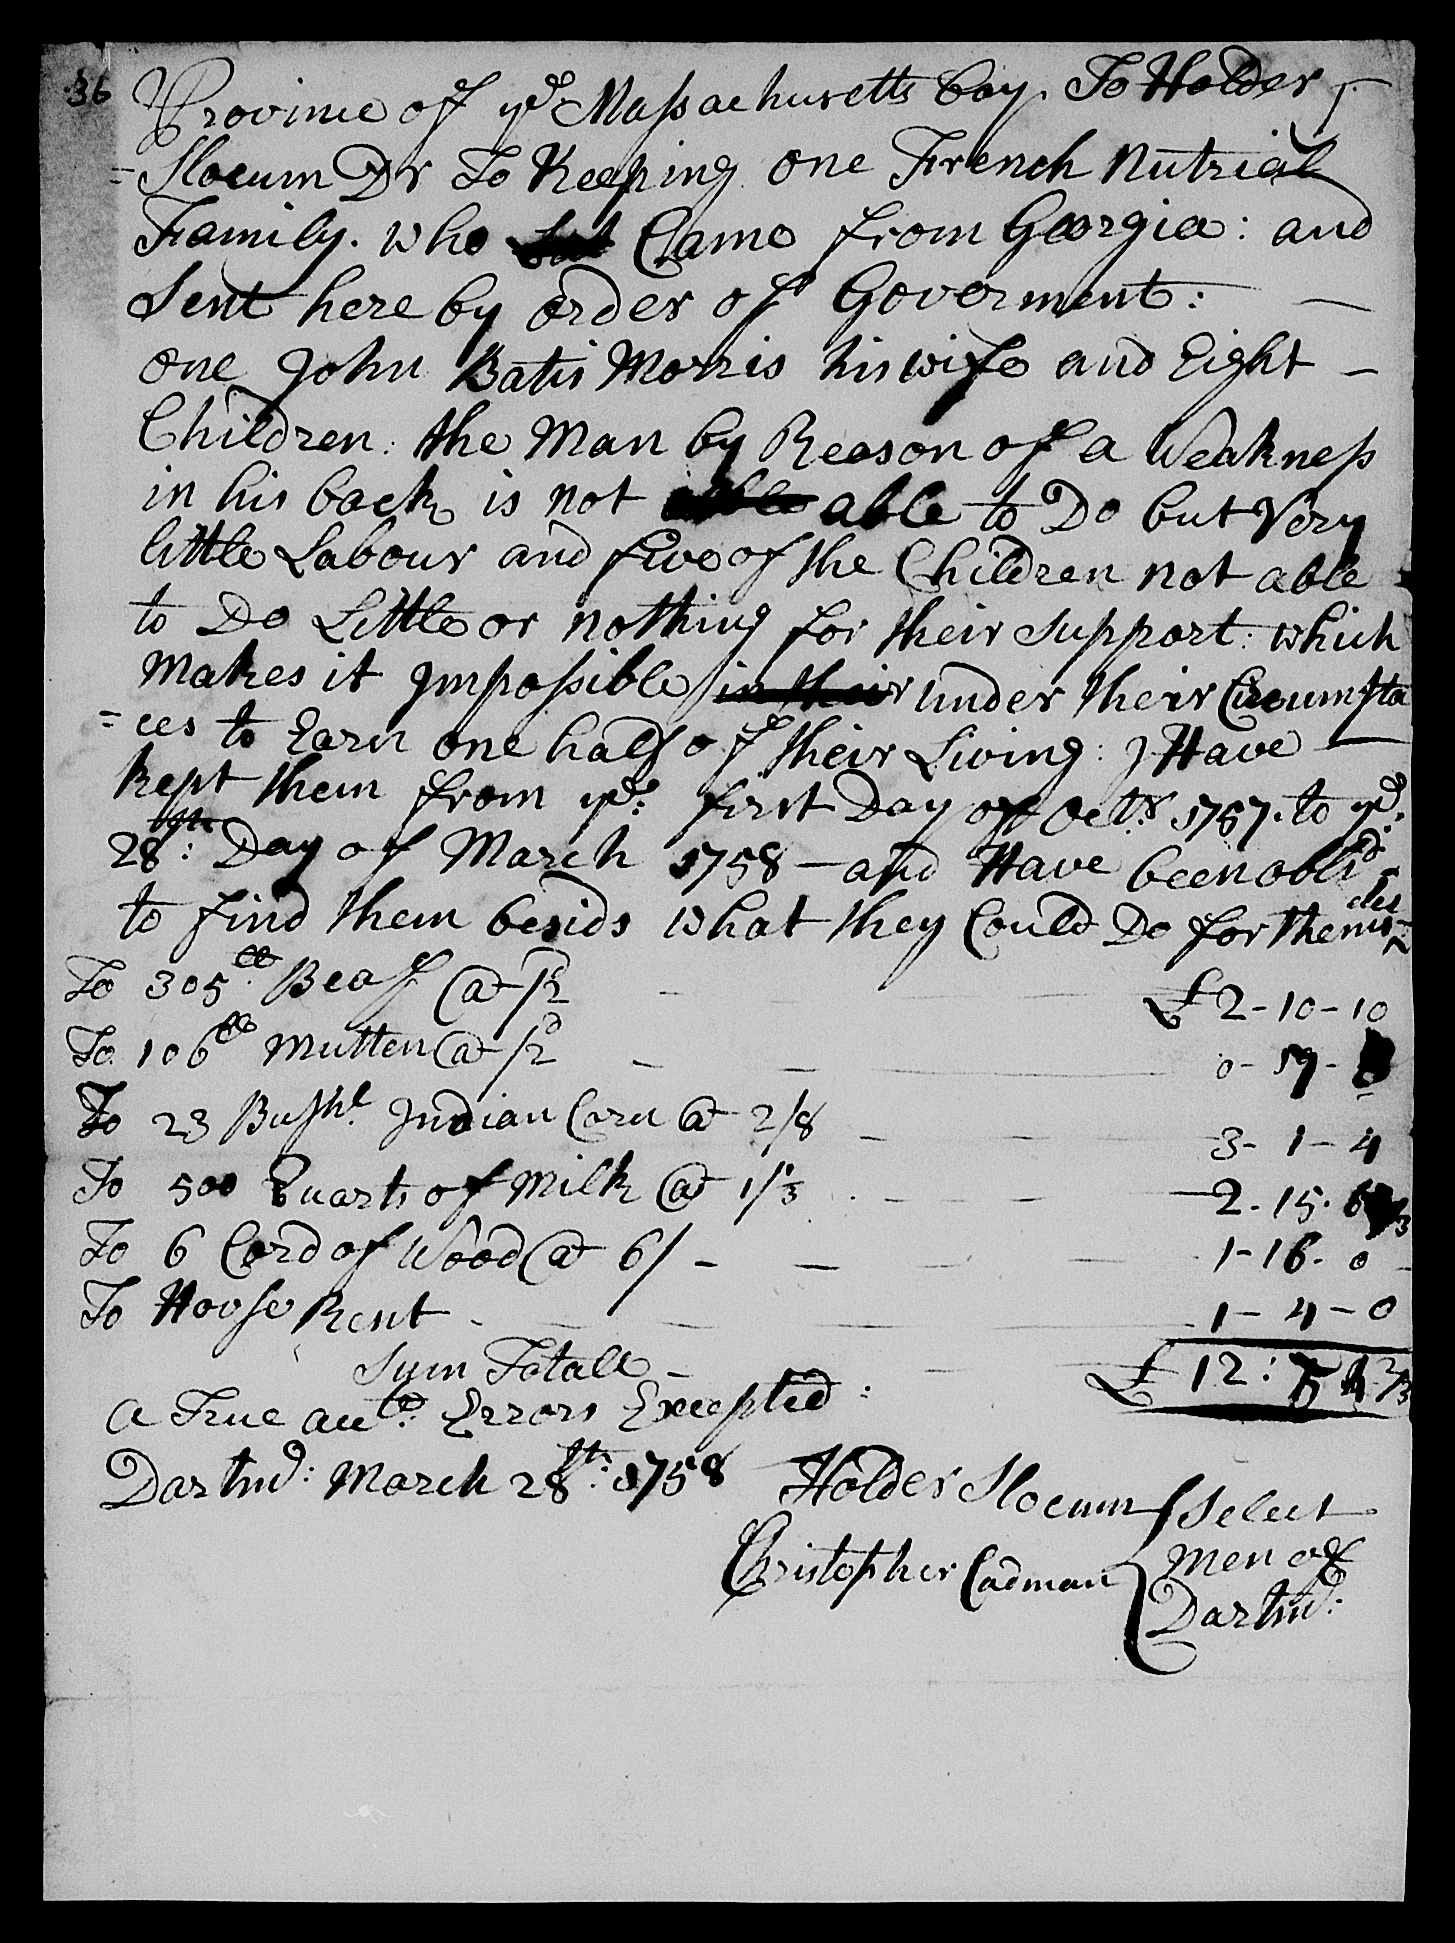 36
Province of ye Massachusetts bay. To Holder
=Slocum Dr To Keeping one French Nutrial
Family. who Came from Georgia: and
Sent here by order of Goverment:
one John Batis Morris his wife and Eight
Children: the Man by Reason of a Weakness
in his back is not able able to Do but Very
little Labour and five of the Children not able
to Do Little or nothing for their support: which
makes it Impossible in their under their Cucumsta
=ces to Earn one half of their Living: I Have
kept them from ye: first Day of Octr. 1757. to ye.
28th: Day of March 1758 - and Have been obligd
to find them besids what they Could Do for themselves
To 305lb Beaf @ /2d £2-10-10
To 106lb Mutten @ /2d 0-17-
To 23 Bushl. Indian Corn @ 2/8 3-1-4
To 500 Quarts of Milk @ 1/3 2-15-6
To 6 Cord of Wood @ 6/ 1-16-0
To House Rent 1-4-0
Sum Totall £12:
a True acct. Errors Excepted:
Dartmo: March 28th: 1758
Holder Slocum } Select
Christopher Cadman } Men of
Dartmo: